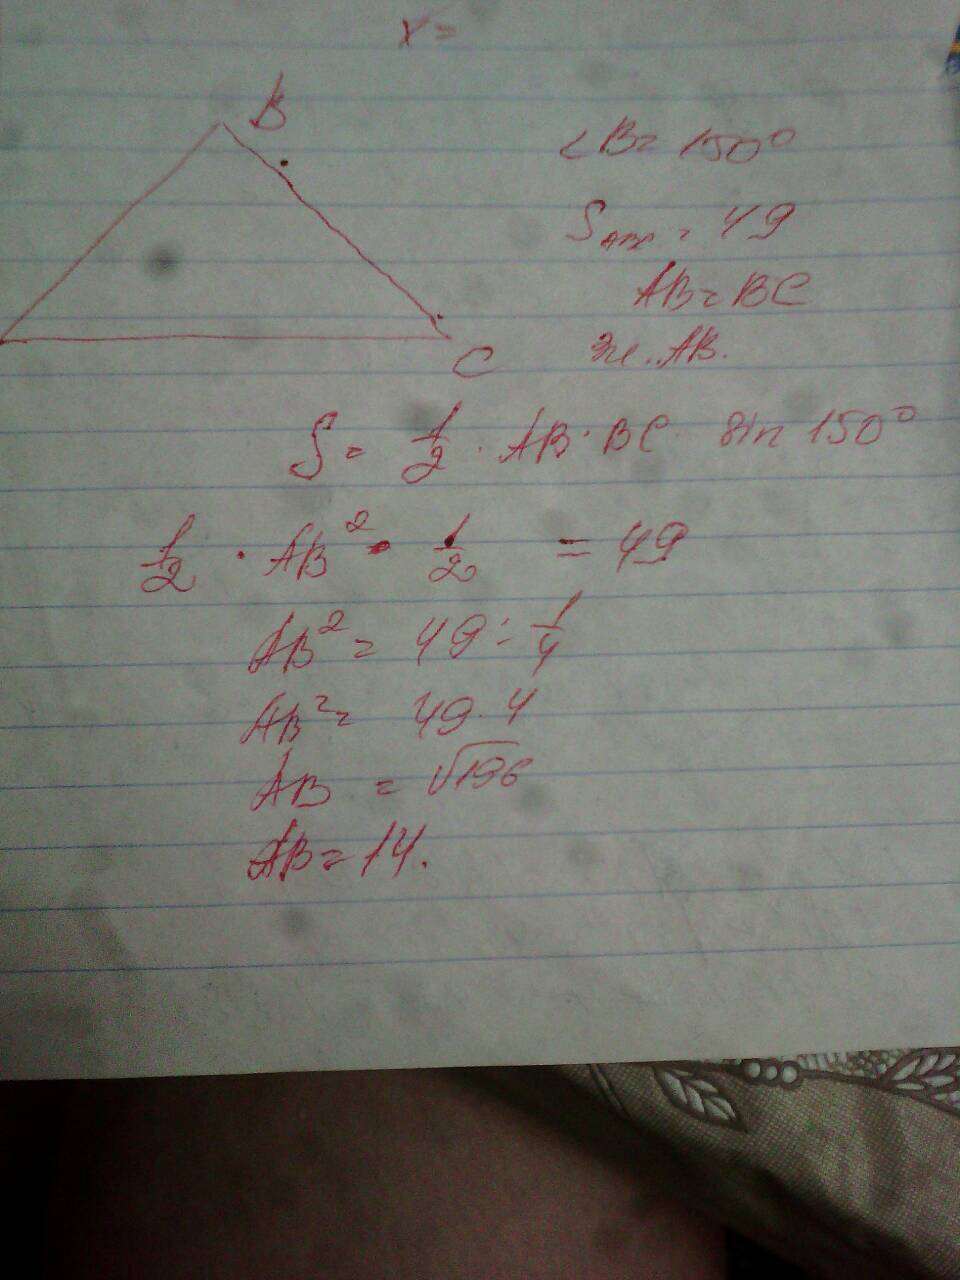 x =
B
∠B = 150°
S ABC = 49
AB = BC
C
AB.
S = 1/2 · AB · BC · sin 150°
1/2 · AB² · 1/2 = 49
AB² = 49 : 1/4
AB² = 49 · 4
AB = √196
AB = 14.